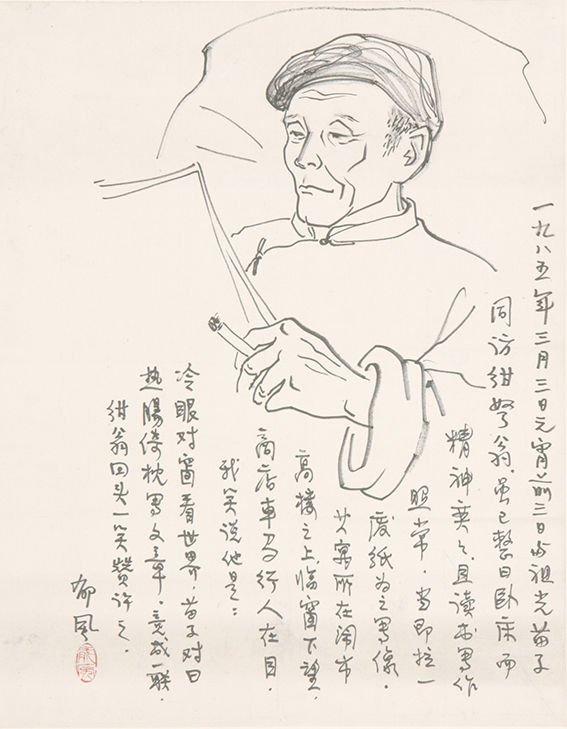 一九八五年三月三日元宵前三日与祖光苗子
同访绀弩翁。虽已整日卧床而
精神奕々且读书写作
照常。当即拉一
废纸为之写像。
其寓所在闹市
高楼之上，临窗下望，
商店車马行人在目，
我笑说他是：
冷眼对窗看世界，苗子对曰
热腸倚枕写文章。竟成一联，
绀翁回头一笑赞许之。
郁风